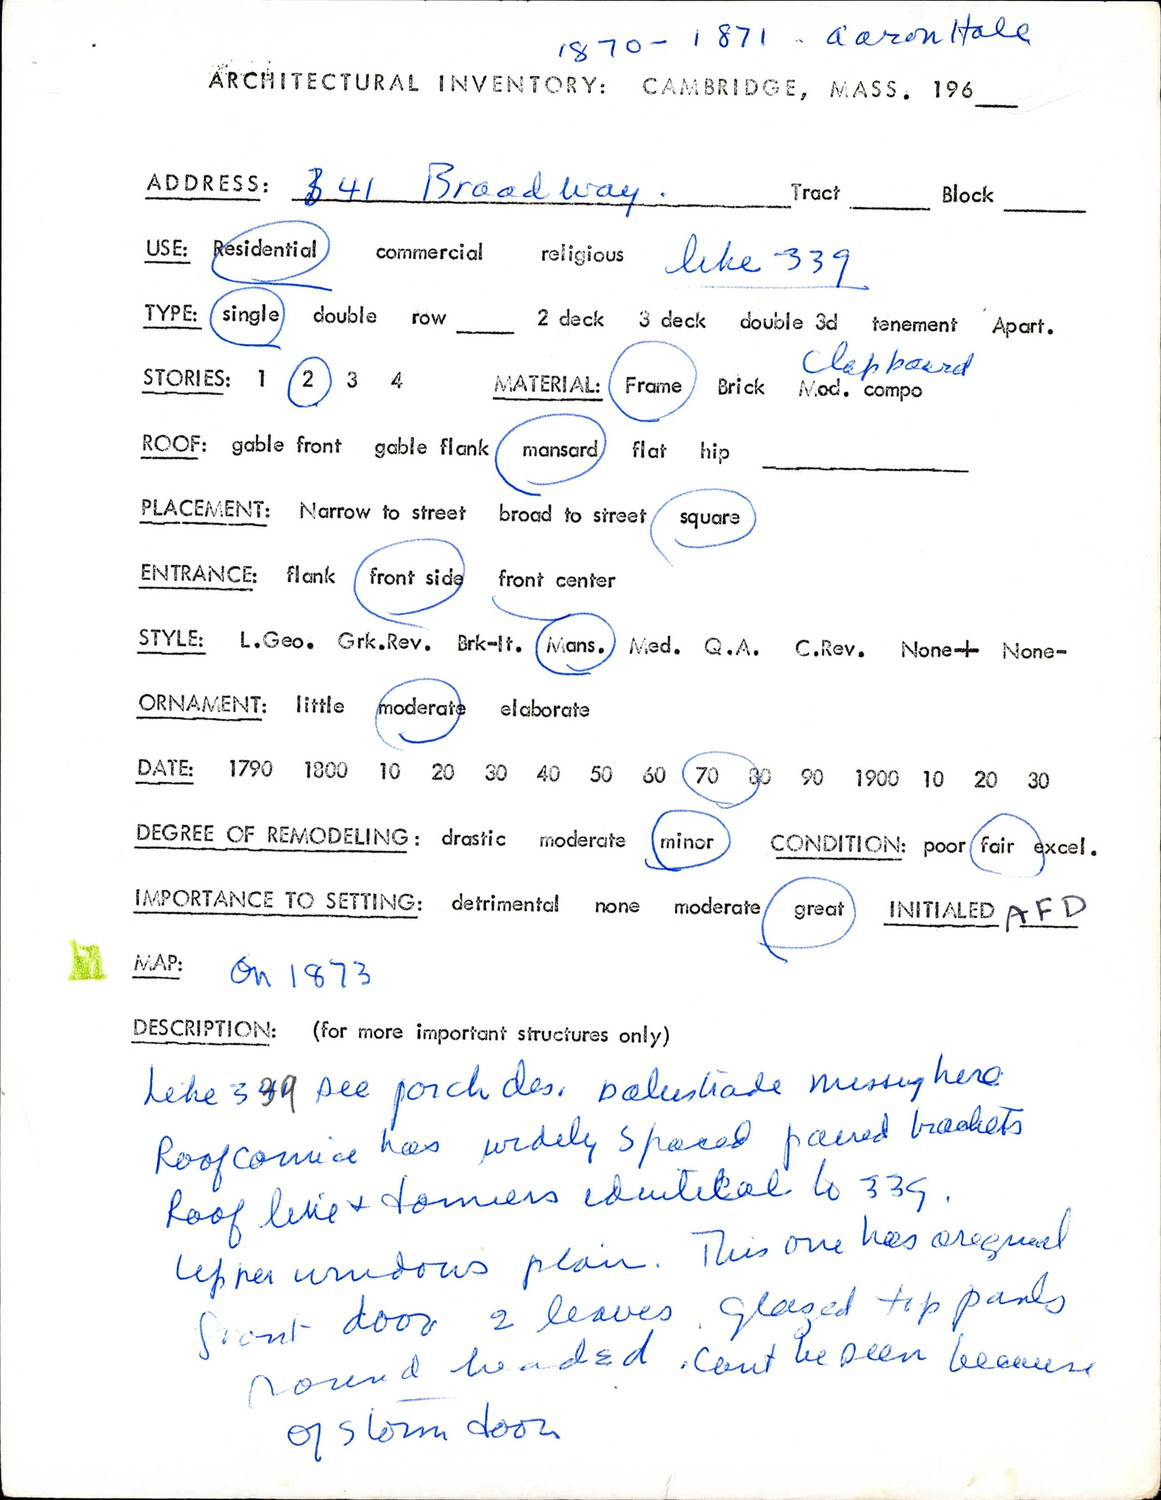 1870-1871 - Aaron Hale
ARCHITECTURAL INVENTORY: CAMBRIDGE, MASS. 196___
ADDRESS: 341 Broadway. Tract ___ Block ___
USE: Residential commercial religious like 339
TYPE: single double row ___ 2 deck 3 deck double 3d tenement Apart.
Clapboard
STORIES: 1 2 3 4 MATERIAL: Frame Brick Mod. compo
ROOF: gable front gable flank mansard flat hip ___
PLACEMENT: Narrow to street broad to street square
ENTRANCE: flank front side front center
STYLE: L.Geo. Grk.Rev. Brk-It. Mans. Med. Q.A. C.Rev. None+ None-
ORNAMENT: little moderate elaborate
DATE: 1790 1800 10 20 30 40 50 60 70 80 90 1900 10 20 30
DEGREE OF REMODELING: drastic moderate minor CONDITION: poor fair excel.
IMPORTANCE TO SETTING: detrimental none moderate great INITIALED AFD
MAP: On 1873
DESCRIPTION: (for more important structures only)
Like 339 see porch des. balustrade missing here
Roof cornice has widely spaced paired brackets
Roof like + dormers identical to 339.
Upper windows plain. This one has original
front door 2 leaves. glazed top panls
round headed. Cant be seen because
of storm door